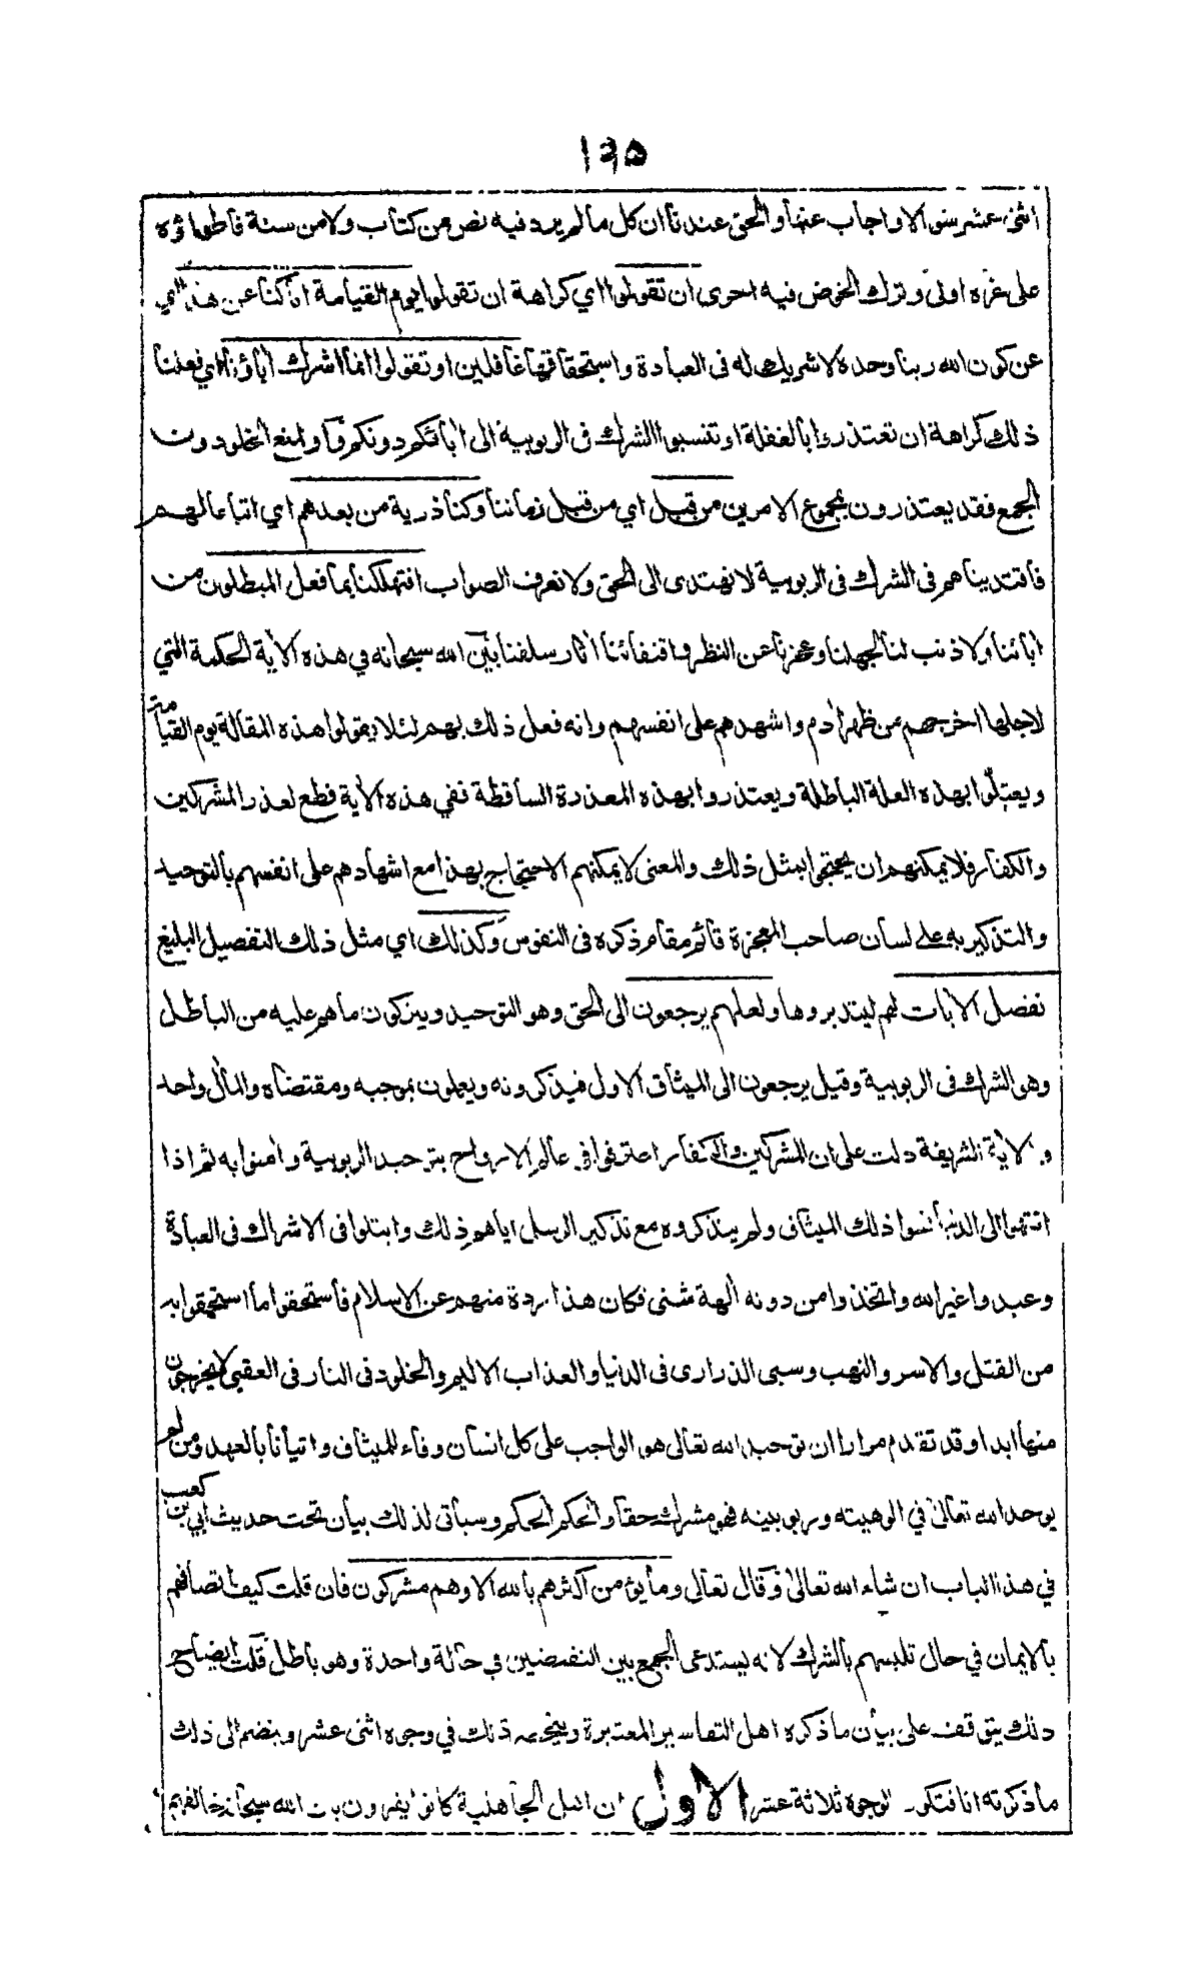 ١٣٥
اثنى عشر سوالا واجاب عنها والحق عندنا ان كل ما لم يرد فيه نص من كتاب ولا من سنة فاطواؤه
على غره اولى وترك الخوض فيه احرى ان تقولوا اي كراهة ان تقولوا يوم القيامة انا كنا عن هذا اي
عن كون الله ربنا وحده لا شريك له فى العبادة واستحقاقها غافلين او تقولوا انما اشرك اباؤنا اي فعلنا
ذلك كراهة ان تعتذروا بالغفلة او تنسبوا الشرك فى الربوبية الى ابائكم دونكم واو لمنع الخلو دون
الجمع فقد يعتذرون بمجموع الامرين من قبل اي من قبل زماننا وكنا ذرية من بعدهم اي اتباعا لهم
فاقتديناهم فى الشرك فى الربوبية لا نهتدى الى الحق ولا نعرف الصواب افتهلكنا بما فعل المبطلون من
ابائنا ولا ذنب لنا لجهلنا وعجزنا عن النظر واقتفائنا اثار سلفنا بين الله سبحانه في هذه الاية الحكمة التي
لاجلها اخرجهم من ظهر ادم واشهدهم على انفسهم وانه فعل ذلك بهم لئلا يقولوا هذه المقالة يوم القيامة
ويعتلوا بهذه العلة الباطلة ويعتذروا بهذه المعذرة الساقطة ففي هذه الاية قطع لعذر المشركين
والكفار فلا يمكنهم ان يحتجوا بمثل ذلك والمعنى لا يمكنهم الاحتجاج بهذا مع اشهادهم على انفسهم بالتوحيد
والتذكير به على لسان صاحب المعجزة قائم مقام ذكره فى النفوس وكذلك اي مثل ذلك التفصيل البليغ
نفصل الايات لهم ليتدبروها ولعلهم يرجعون الى الحق وهو التوحيد ويتركون ما هم عليه من الباطل
وهو الشرك فى الربوبية وقيل يرجعون الى الميثاق الاول فيذكرونه ويعملون بموجبه ومقتضاه والمأل واحد
و الاية الشريفة دلت على ان المشركين والكفار اعترفوا في عالم الارواح بتوحيد الربوبية وامنوا به ثم اذا
انتهوا الى الدنيا نسوا ذلك الميثاق ولم يتذكروه مع تذكير الرسل اياهم ذلك وابتلوا فى الاشراك فى العبادة
وعبدوا غير الله واتخذوا من دونه الهة شتى فكان هذا ردة منهم عن الاسلام فاستحقوا ما استحقوا به
من القتل والاسر والنهب وسبى الذرارى فى الدنيا والعذاب الاليم والخلود فى النار فى العقبى لا يخرجون
منها ابدا وقد تقدم مرارا ان توحيد الله تعالى هو الواجب على كل انسان وفاء للميثاق واتيانا بالعهد ومن لم
يوحد الله تعالى في الوهيته وربوبيته فهو مشرك حقا والحكم الحكم وسيأتى لذلك بيان تحت حديث ابي بن كعب
في هذا الباب ان شاء الله تعالى وقال تعالى وما يؤمن اكثرهم بالله الا وهم مشركون فان قلت كيف اتصافهم
بالايمان في حال تلبسهم بالشرك لانه يستدعى الجمع بين النقيضين في حالة واحدة وهو باطل قلت ايضاح
ذلك يتوقف على بيان ما ذكره اهل التفاسير المعتبرة ويتخصه ذلك في وجوه اثنى عشر وينضم الى ذلك
ما ذكرته انا فتكون الوجوه ثلاثة عشر الاول ان اهل الجاهلية كانوا يقرون بان الله سبحانه خالقهم